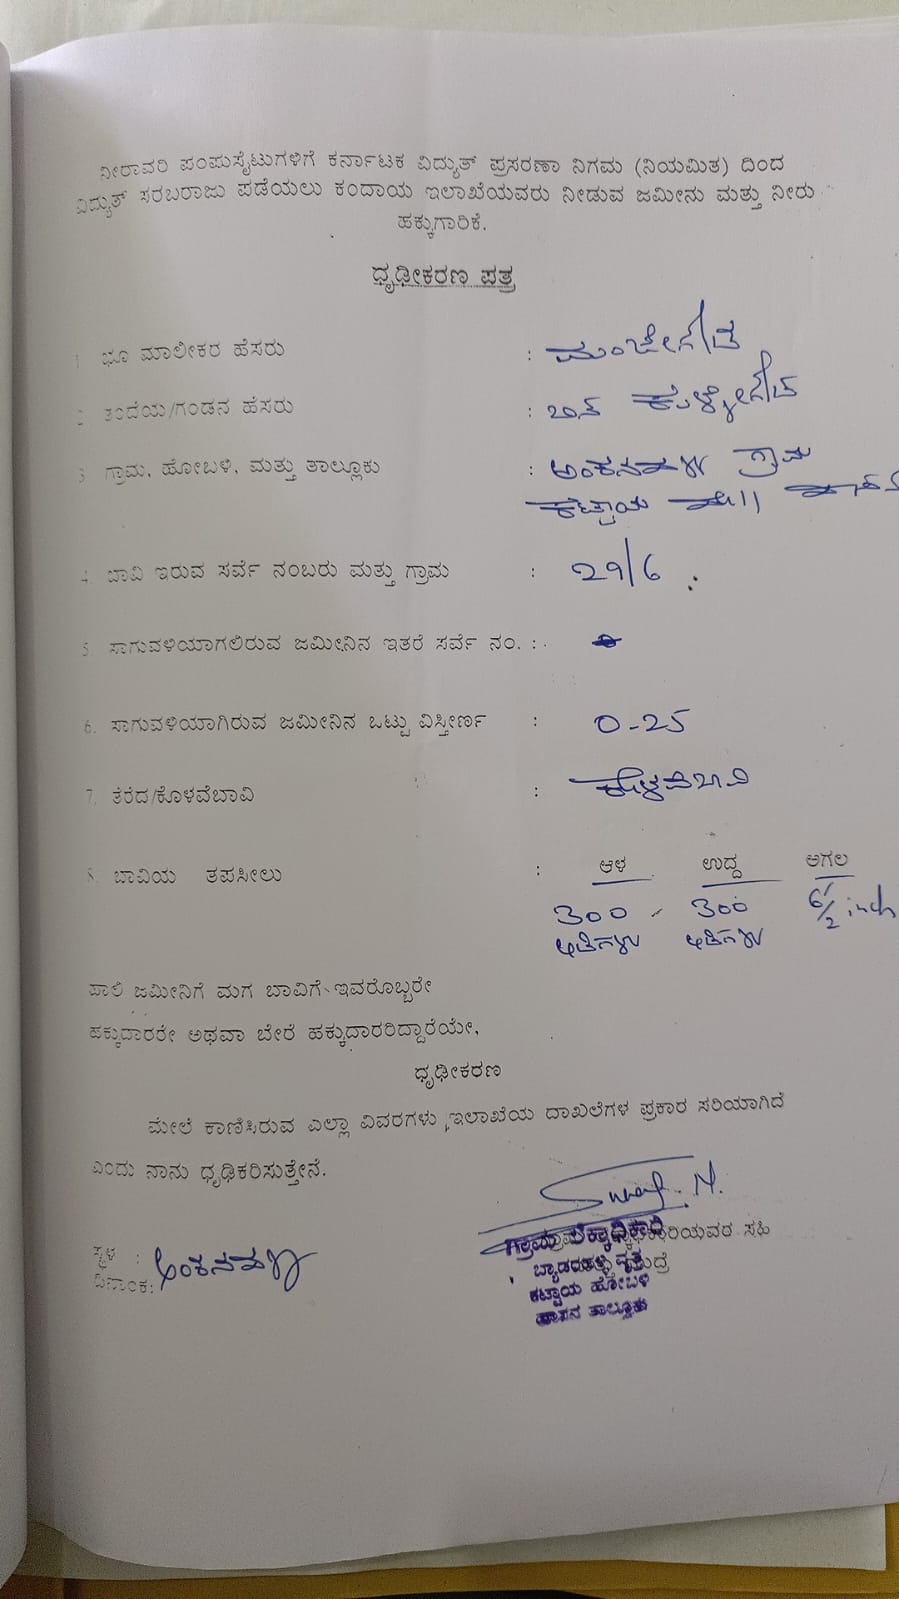 ನೀರಾವರಿ ಪಂಪುಸೈಟುಗಳಿಗೆ ಕರ್ನಾಟಕ ವಿದ್ಯುತ್ ಪ್ರಸರಣಾ ನಿಗಮ (ನಿಯಮಿತ) ದಿಂದ
ವಿದ್ಯುತ್ ಸರಬರಾಜು ಪಡೆಯಲು ಕಂದಾಯ ಇಲಾಖೆಯವರು ನೀಡುವ ಜಮೀನು ಮತ್ತು ನೀರು
ಹಕ್ಕುಗಾರಿಕೆ.
ಧೃಢೀಕರಣ ಪತ್ರ
1 ಭೂ ಮಾಲೀಕರ ಹೆಸರು : ಮಂಜೇಗೌಡ
2 ತಂದೆಯ/ಗಂಡನ ಹೆಸರು : ಬಿನ್
3 ಗ್ರಾಮ, ಹೋಬಳಿ, ಮತ್ತು ತಾಲ್ಲೂಕು : ಅಂಕನಹಳ್ಳಿ ಗ್ರಾಮ
ಕಟ್ಟಾಯ ಹೋ||
4. ಬಾವಿ ಇರುವ ಸರ್ವೆ ನಂಬರು ಮತ್ತು ಗ್ರಾಮ : 29/6
5. ಸಾಗುವಳಿಯಾಗಲಿರುವ ಜಮೀನಿನ ಇತರೆ ಸರ್ವೆ ನಂ. :
6. ಸಾಗುವಳಿಯಾಗಿರುವ ಜಮೀನಿನ ಒಟ್ಟು ವಿಸ್ತೀರ್ಣ : 0-25
7. ತೆರೆದ/ಕೊಳವೆಬಾವಿ : ಕೊಳವೆಬಾವಿ
8. ಬಾವಿಯ ತಪಸೀಲು : ಆಳ ಉದ್ದ ಅಗಲ
300 - 300 6 1/2 inch
ಅಡಿಗಳು ಅಡಿಗಳು
ಹಾಲಿ ಜಮೀನಿಗೆ ಮಗ ಬಾವಿಗೆ ಇವರೊಬ್ಬರೇ
ಹಕ್ಕುದಾರರೇ ಅಥವಾ ಬೇರೆ ಹಕ್ಕುದಾರರಿದ್ದಾರೆಯೇ,
ಧೃಢೀಕರಣ
ಮೇಲೆ ಕಾಣಿಸಿರುವ ಎಲ್ಲಾ ವಿವರಗಳು ಇಲಾಖೆಯ ದಾಖಲೆಗಳ ಪ್ರಕಾರ ಸರಿಯಾಗಿದೆ
ಎಂದು ನಾನು ಧೃಢಿಕರಿಸುತ್ತೇನೆ.
ಸಹಿ
ಗ್ರಾಮ ಲೆಕ್ಕಾಧಿಕಾರಿ
ವೃತ್ತ
ಕಟ್ಟಾಯ ಹೋಬಳಿ
ಹಾಸನ ತಾಲ್ಲೂಕು
ಸ್ಥಳ : ಅಂಕನಹಳ್ಳಿ
ದಿನಾಂಕ: